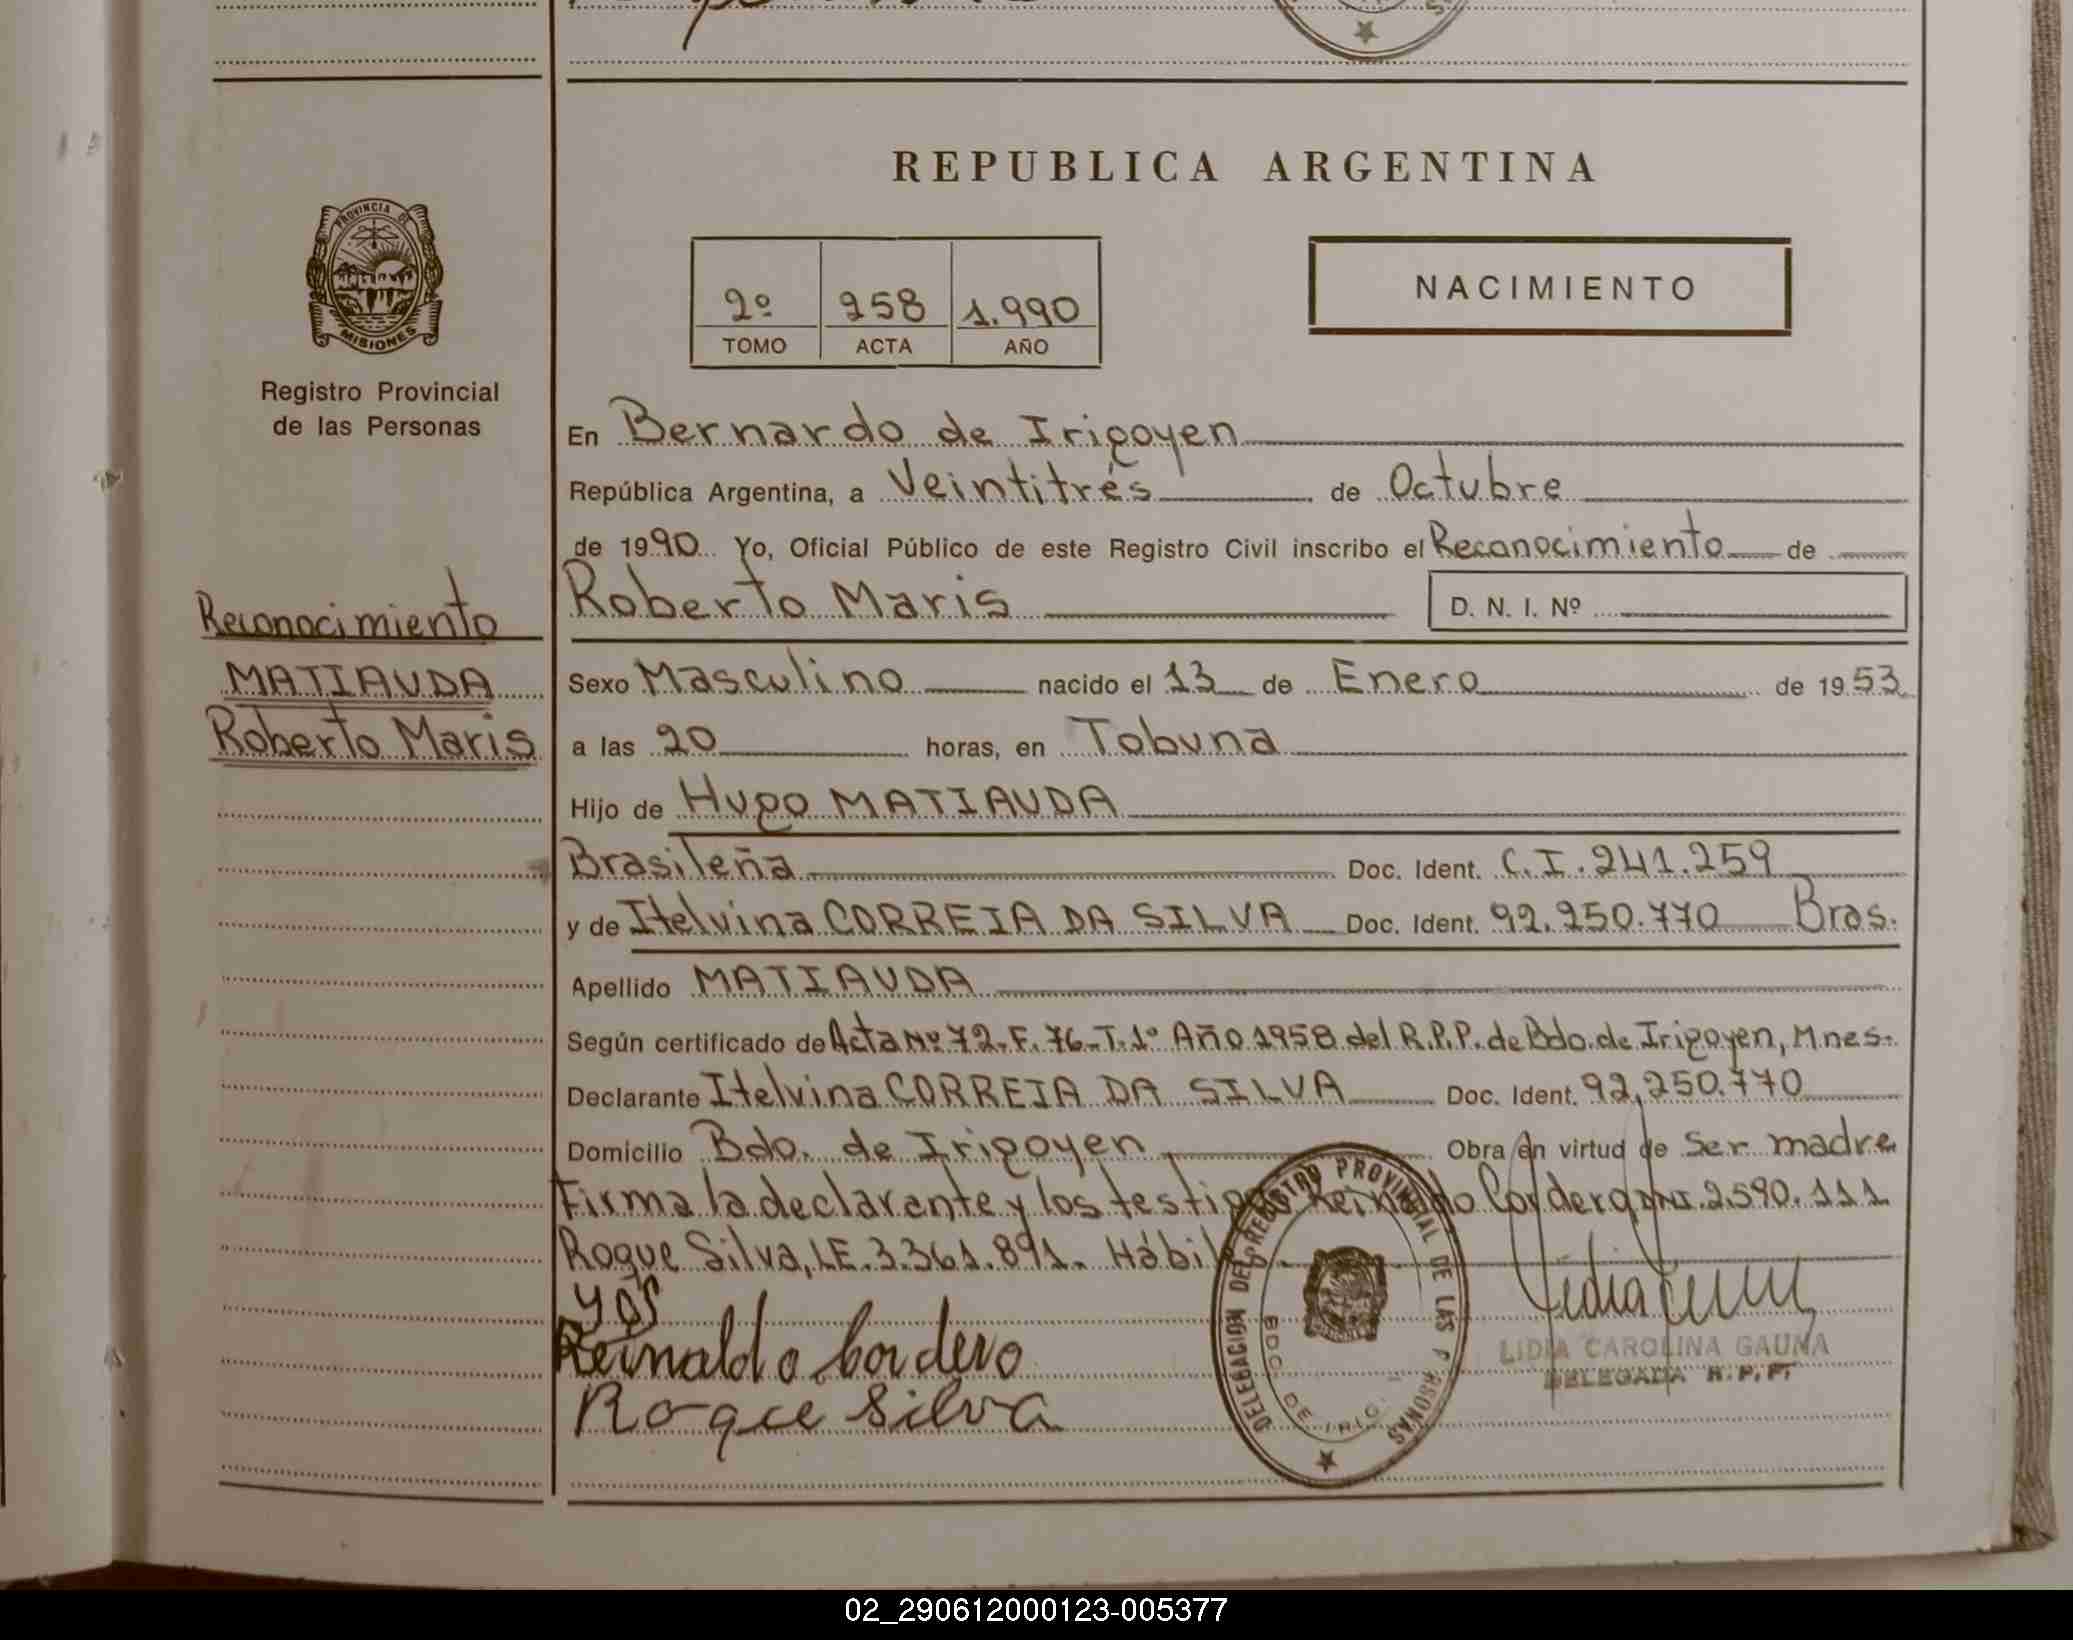 REPUBLICA ARGENTINA
PROVINCIA DE
MISIONES
Registro Provincial
de las Personas
2º 258 1.990
TOMO ACTA AÑO
NACIMIENTO
En Bernardo de Irigoyen
República Argentina, a Veintitrés de Octubre
de 1990 Yo, Oficial Público de este Registro Civil inscribo el Reconocimiento de
Roberto Maris D. N. I. Nº
Reconocimiento
MATIAUDA
Roberto Maris
Sexo Masculino nacido el 13 de Enero de 1953
a las 20 horas, en Tobuna
Hijo de Hugo MATIAUDA
Brasileña Doc. Ident. C.I. 241.259
y de Itelvina CORREIA DA SILVA Doc. Ident. 92.250.770 Bras.
Apellido MATIAUDA
Según certificado de Acta Nº 72-F. 76-T.1º Año 1958 del R.P.P. de Bdo. de Irigoyen, Mnes.
Declarante Itelvina CORREIA DA SILVA Doc. Ident. 92.250.770
Domicilio Bdo. de Irigoyen Obra en virtud de Ser madre
Firma la declarante y los testigos Reinaldo Cordero DNI. 2.590.111
Roque Silva, LE. 3.361.891. Hábiles
Reinaldo Cordero
Roque Silva
DELEGACION DEL REGISTRO PROVINCIAL DE LAS PERSONAS
BDO. DE IRIG.
LIDIA CAROLINA GAUNA
DELEGADA R.P.P.
02_290612000123-005377